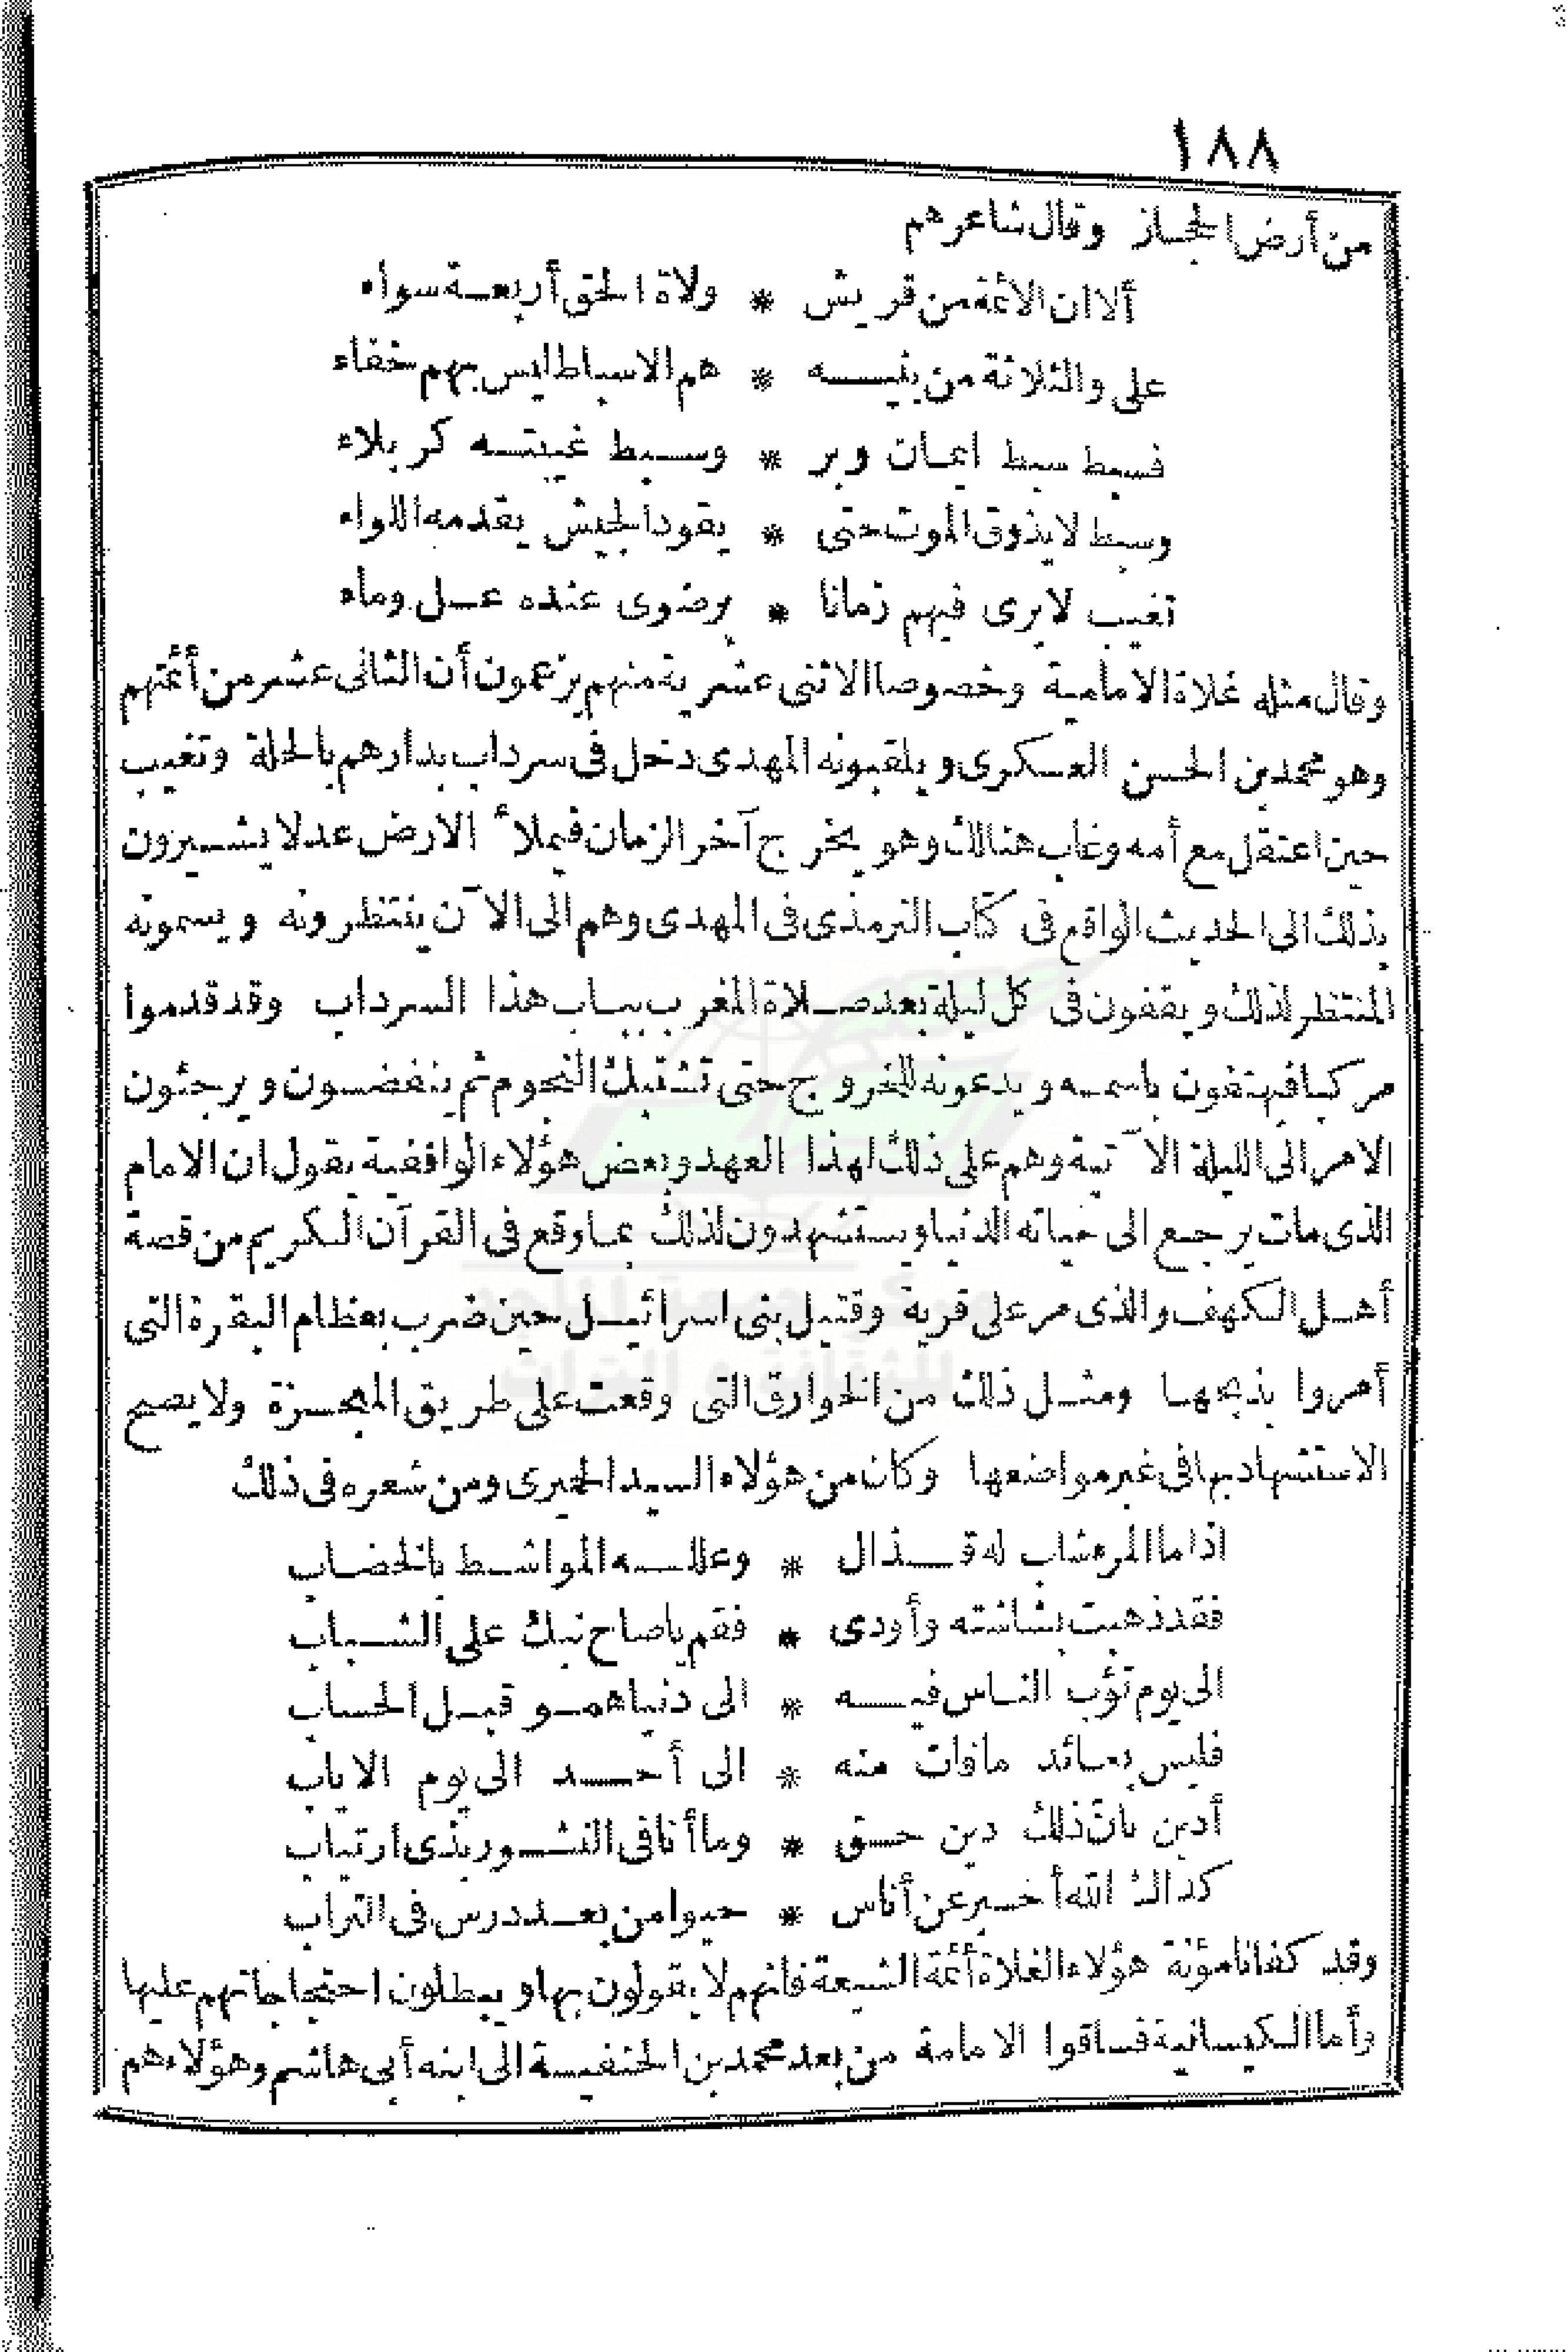 ١٨٨
من أرض الحجاز وقال شاعرهم
ألا ان الائمة من قريش * ولاة الحق أربعة سواء
على والثلاثة من بنيه * هم الاسباط ليس بهم خفاء
فسبط سبط ايمان وبر * وسبط غيبته كربلاء
وسبط لا يذوق الموت حتى * يقود الجيش يقدمه اللواء
تغيب لا يرى فيهم زمانا * برضوى عنده عسل وماء
وقال مثله غلاة الامامية وخصوصا الاثنى عشرية منهم يزعمون أن الثانى عشر من أئمتهم
وهو محمد بن الحسن العسكرى ويلقبونه المهدى دخل فى سرداب بدارهم بالحلة وتغيب
حين اعتقل مع أمه وغاب هنالك وهو يخرج آخر الزمان فيملأ الارض عدلا يشيرون
بذلك الى الحديث الواقع فى كتاب الترمذى فى المهدى وهم الى الآن ينتظرونه ويسمونه
المنتظر لذلك ويقفون فى كل ليلة بعد صلاة المغرب بباب هذا السرداب وقد قدموا
مركبا فيهتفون باسمه ويدعونه للخروج حتى تشتبك النجوم ثم ينفضون ويرجئون
الامر الى الليلة الآتية وهم على ذلك لهذا العهد وبعض هؤلاء الواقفية يقول ان الامام
الذى مات يرجع الى حياته الدنيا ويستشهدون لذلك بما وقع فى القرآن الكريم من قصة
أهل الكهف والذى مر على قرية وقتيل بنى اسرائيل حين ضرب بعظام البقرة التى
أمروا بذبحها ومثل ذلك من الخوارق التى وقعت على طريق المعجزة ولا يصح
الاستشهاد بها فى غير مواضعها وكان من هؤلاء السيد الحميرى ومن شعره فى ذلك
اذا ما المرء شاب له قذال * وعلله المواشط بالخضاب
فقد ذهبت بشاشته وأودى * فقم يا صاح نبك على الشباب
الى يوم تؤب الناس فيه * الى دنياهمو قبل الحساب
فليس بعائد ما فات منه * الى أحد الى يوم الاياب
أدين بان ذلك دين حق * وما أنا فى النشور بذى ارتياب
كذاك الله أخبر عن أناس * حيوا من بعد درس فى التراب
وقد كفانا مؤنة هؤلاء الغلاة أئمة الشيعة فانهم لا يقولون بها ويبطلون احتجاجاتهم عليها
وأما الكيسانية فساقوا الامامة من بعد محمد بن الحنفية الى ابنه أبى هاشم وهؤلاء هم
مركز جمعة الماجد
للثقافة و التراث